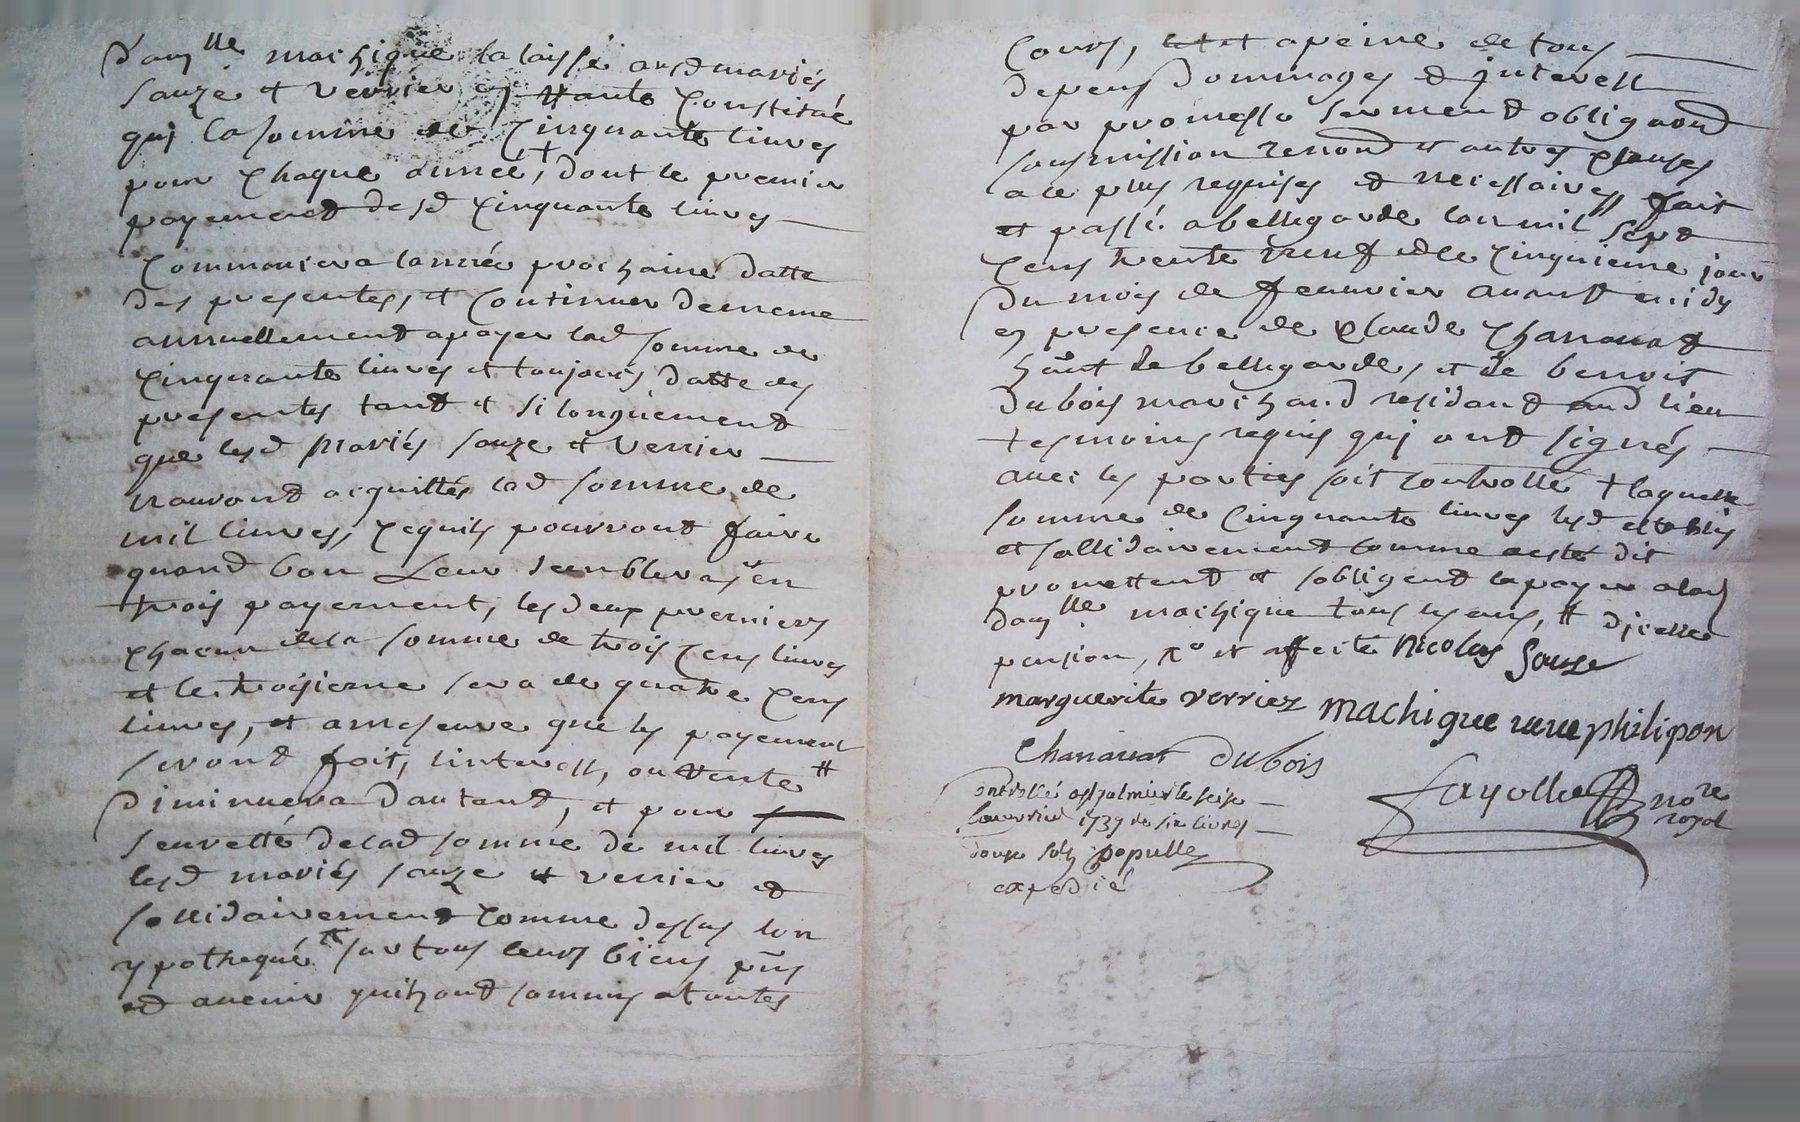 damlle machique la laissé ausd mariés
Sauze et verrier en rante constitué
qui la somme de cinquante liures
pour chaque année, + dont le premier
payement desd cinquante liures
commancera lannée prochaine datte
des presentes, et continuer de meme
annuellement a payer lad somme de
cinquante liures et toujours datte des
presentes tant et si longuement
que lesd mariés sauze et verrier
nauront acquittés lad somme de
mil liures, ce quils pourront faire
quand bon Leur semblera, en
trois payement, les deux premiers
chacun de la somme de trois cens liures
et le troisieme sera de quatre cens
liures, et amesure que les payement
seront fait, linterest, ou rente #
diminuera dautant, et pour
seuretté de lad somme de mil liures
lesd mariés sauze et verrier et
sollidairement comme dessus lon
ypothequé sur tous leurs biens pns
et auenir quils ont sommis atoutes
cours, a peine de tous
depens dommages et interest
par promesse serment obligaon
soumission renond et autres clauses
a ce plus requises et necessaires fait
et passé a bellegarde lan mil sept
cens trente neuf et le cinquieme jour
du mois de feuurier auant midy
en presence de claude chanauat
hant de bellegarde, et de benoit
dubois marchand residant aud lieu
tesmoins requis qui ont signés
auec les parties soit controllé + laquelle
somme de cinquante liures lesd establis
et sollidairement comme a esté dit
promettent et sobligent la payer alad
damlle machique tous les ans, # dicelle
pension, et Nicolas Sauze
marguerite verriez machique veue philipon
Chanauat dubois
controllé a st galmier le seize
feuvrier 1739 de six livres
douze sols populle
expedié
fayolle nore
royal